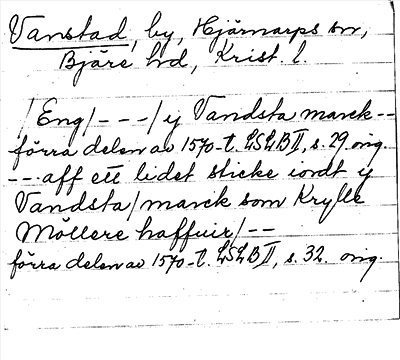 Vanstad, by, Hjärnarps sn,
Bjäre hd, Krist. l.
/Eng/ - - - / y Vandsta marck - -
förra delen av 1570-t. LSLB II, s. 29. orig.
- - - aff ett lidet sticke iordt y
Vandsta / marck som Krylle
Möllere haffuir / - -
förra delen av 1570-t. LSLB II, s. 32. orig.